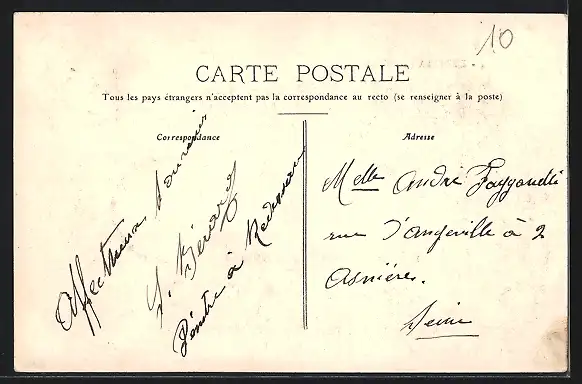 10
CARTE POSTALE
Tous les pays étrangers n'acceptent pas la correspondance au recto (se renseigner à la poste)
Correspondance
Adresse
Affectueux Souvenir
Bérard
à
Melle André
rue d'Angeville à 2
Asnières.
Seine